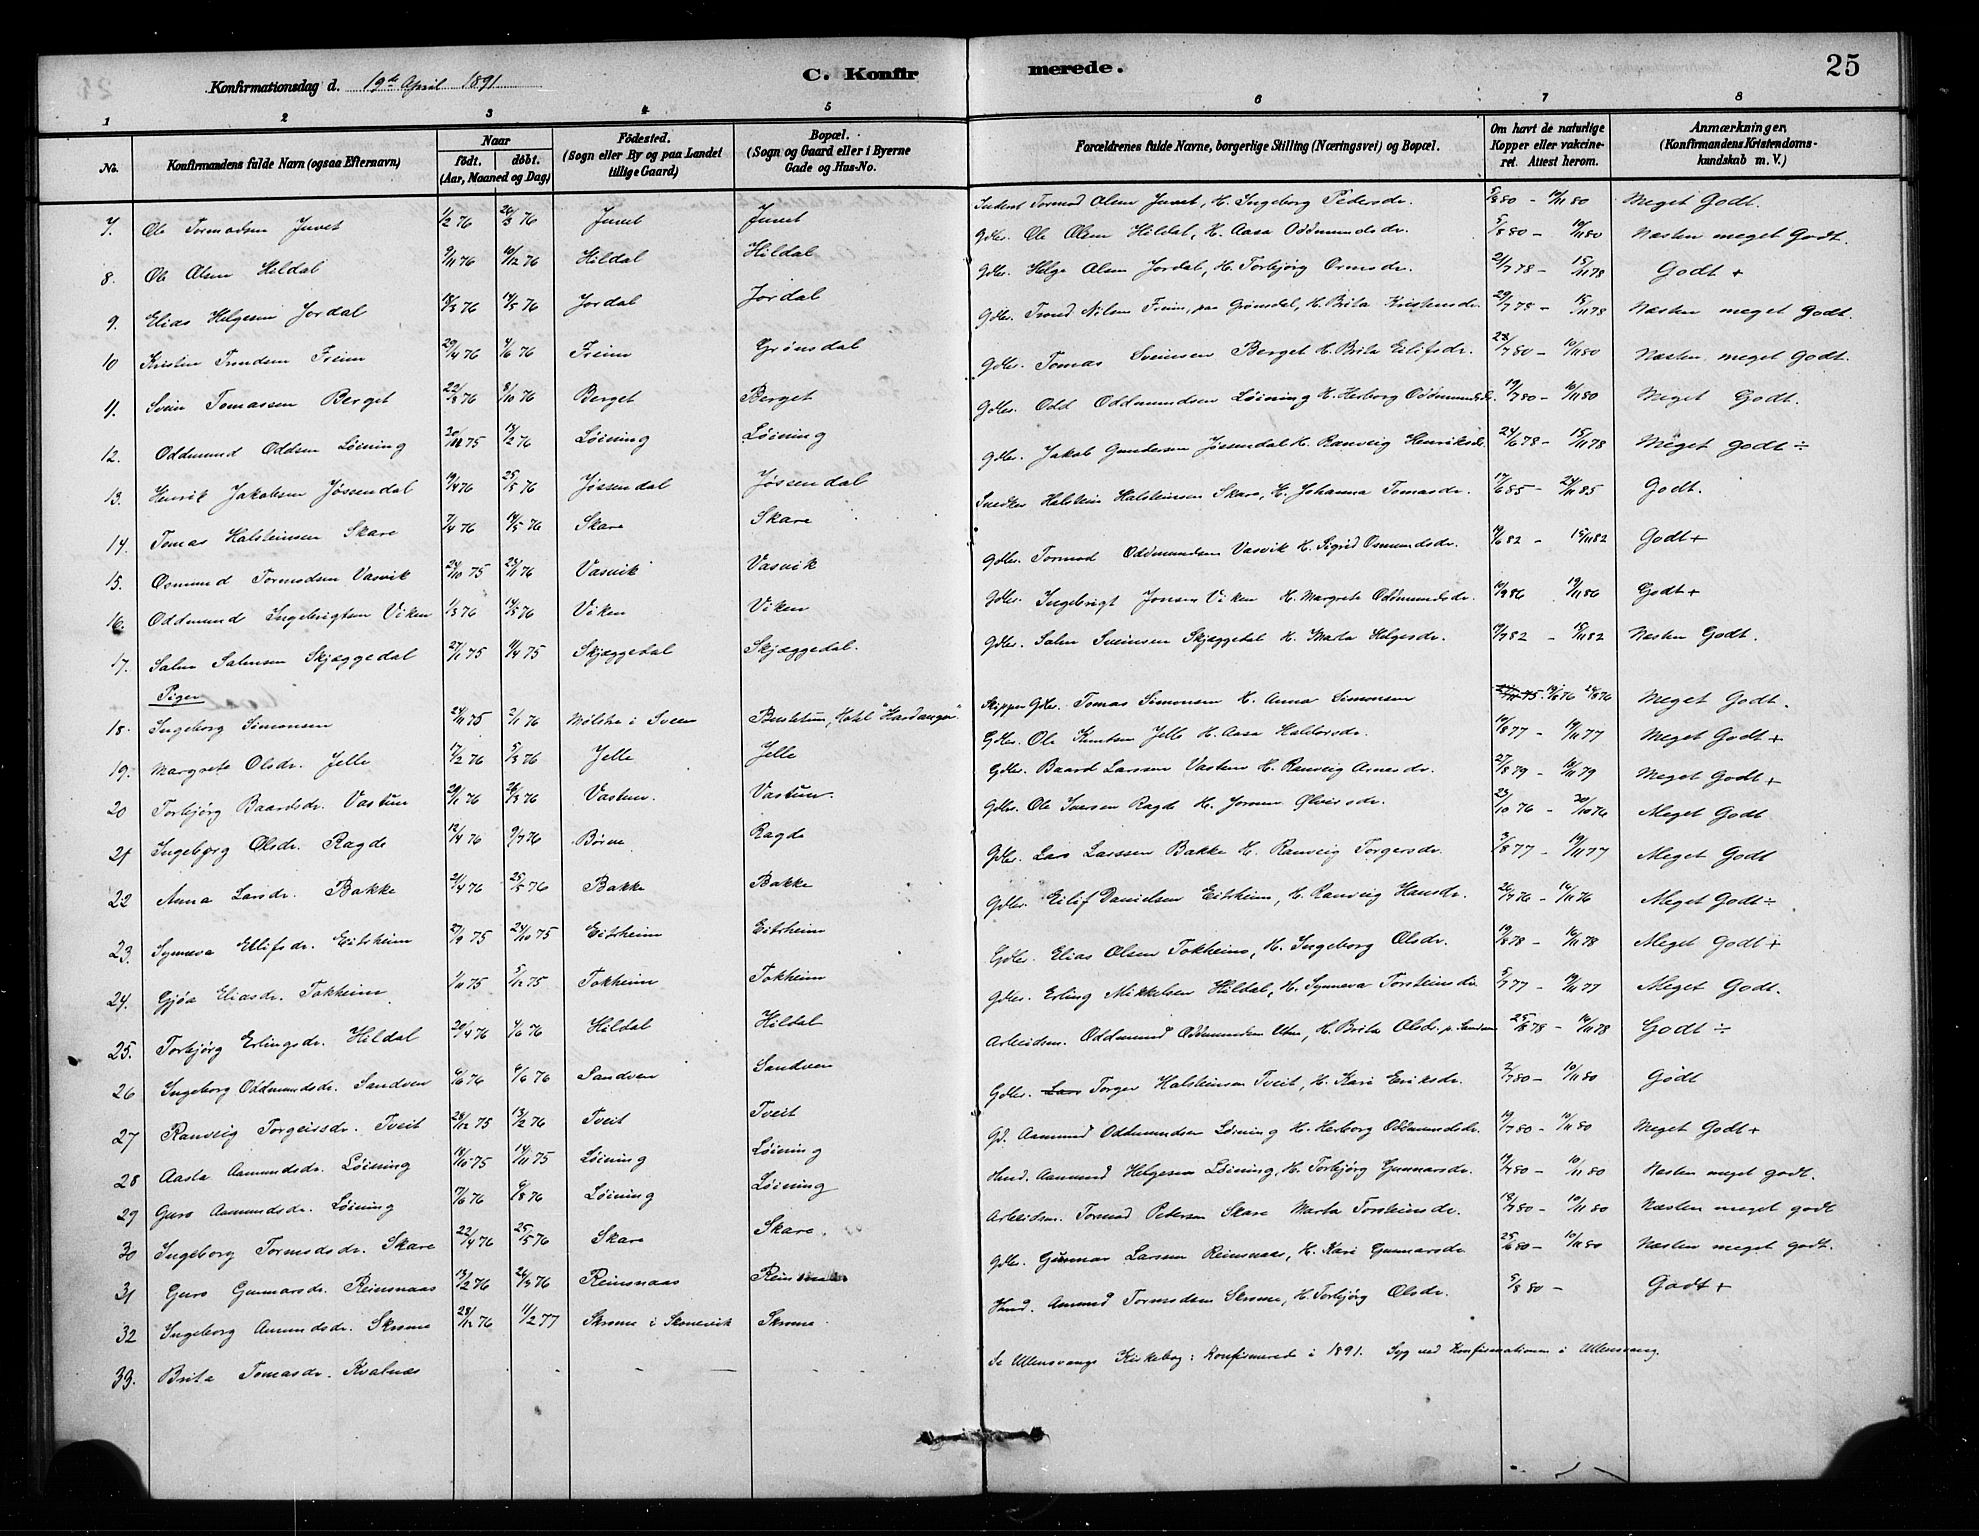 C. Konfirmerede.
25
Konfirmationsdag d. 19de April 1891.
1 2 3 4 5 6 7 8
No.
Konfirmandens fulde Navn (ogsaa Efternavn)
Naar
födt. döbt.
(Aar, Maaned og Dag)
Födested.
(Sogn eller By og paa Landet
tillige Gaard)
Bopæl.
(Sogn og Gaard eller i Byerne
Gade og Hus-No.
Forældrenes fulde Navne, borgerlige Stilling (Næringsvei) og Bopæl.
Om havt de naturlige
Kopper eller vakcine-
ret. Attest herom.
Anmærkninger,
(Konfirmandens Kristendoms-
kundskab m. V.)
7. Ole Tormodsen Juvet 1/2 76 26/3 76 Juvet Juvet Tormod Olsen Juvet, H. Ingeborg Pedersdr. 5/8 80 - 10/11 80 Meget Godt.
8. Ole Olsen Hildal 9/11 76 10/12 76 Hildal Hildal Gdbr. Ole Olsen Hildal, H. Aasa Oddmundsdr. 5/8 80 - 10/11 80 Næsten meget Godt.
9. Elias Helgesen Jordal 18/3 76 14/5 76 Jordal Jordal Gdbr. Helge Olsen Jordal, H. Torbjörg Ormsdr. 21/7 78 - 15/11 78 Godt +
10 Kristen Trondsen Freim 29/4 76 4/6 76 Freim Grönsdal Gdbr. Trond Nilsen Freim, paa Grönsdal, H. Brita Kristensdr. 29/7 78 - 15/11 78 Næsten meget Godt.
11. Svein Tomassen Berget 22/8 76 8/10 76 Berget Berget Gdbr. Tomas Sveinsen Berget H. Brita Eilifsdr. 28/7 80 - 10/11 80 Næsten meget Godt.
12. Oddmund Oddsen Löining 13/2 76 Löining Löining Gdbr. Odd Oddmundsen Löining H. Herborg Oddmundsdr. 19/7 80 - 10/11 80 Meget Godt.
13. Henrik Jakobsen Jössendal 19/4 76 25/5 76 Jössendal Jössendal Gdbr. Jakob Gundersen Jössendal H. Ranveig Henriksdr. 24/6 78 - 15/11 78 Meget Godt ÷
14. Tomas Halsteinsen Skare 7/4 76 14/5 76 Skare Skare Snedker Halstein Halsteinsen Skare, H. Johanna Tomasdr. 17/6 85 - 24/11 85 Godt.
15. Osmund Tormodsen Vasvik 24/10 75 23/1 76 Vasvik Vasvik Gdbr. Tormod Oddmundsen Vasvik H. Sigrid Osmundsdr. 19/6 82 - 15/11 82 Godt +
16. Oddmund Ingebrigtsen Viken 1/3 76 14/5 76 Viken Viken Gdbr. Ingebrigt Jonsen Viken H. Margreta Oddmundsdr. 10/9 86 19/11 86 Godt +
17. Salmo Salmosen Skjæggedal 27/1 75 4/4 75 Skjæggedal Skjæggedal. Gdbr. Sveinsen Skjæggedal H. Marta Helgesdr. 19/7 82 - 15/11 82 Næsten Godt.
Piger
18. Ingeborg Simonsen 24/11 75 2/1 76 Mölstre i Sveen Hotel "Hardanger" Skipper Gdbr. Tomas Simonsen H. Anna Simonsen Meget Godt.
19. Margreta Olsdr. Jelle 17/2 76 5/3 76 Jelle Jelle Gdbr. Ole Knutsen Jelle H. Aasa Haldorsdr. 10/8 77 - 19/11 77 Meget Godt +
20 Torbjörg Baardsdr. Vastun 29/1 76 26/3 76 Vastun. Vastun. Gdbr. Baard Larsen Vastun H. Ranveig Arnesdr. 27/8 79 - 10/11 79 Meget Godt +
21 Ingebjørg Olsdr. Ragde 12/4 76 9/7 76 Ragde Gdbr. Ole Iversen Ragde H. Ølversdr. 23/10 76 - 30/10 76 Meget Godt
22 Anna Larsdr. Bakke 21/4 76 25/5 76 Bakke Bakke Gdbr. Lars Larssen Bakke H. Ranveig Torgersdr. 3/8 77 - 19/11 77 Meget Godt
23. Synneva Eilifsdr. Eitrheim 27/9 75 24/10 75 Eitrheim Eitrheim Gdbr. Eilif Danielsen Eitrheim, H. Ranveig Hansdr. 26/7 76 - 10/11 76 Meget Godt ÷
24. Gjöa Eliasdr. Tokheim 1/11 75 5/12 75 Tokheim Tokheim Gdbr. Elias Olsen Tokheim, H. Ingeborg Olsdr. 19/8 78 - 10/11 78 Meget Godt +
25. Torbjörg Erlingsdr. Hildal 20/4 76 4/6 76 Hildal Hildal Gdbr. Erling Mikkelsen Hildal, H. Synneva Torsteinsdr. 5/7 77 - 19/11 77 Meget Godt.
26 Ingeborg Oddmundsdr. Sandven Sandven Sandven Arbeidsm. Oddmund Oddmundsen Utne, H. Brita Olsdr. p. Sandven 25/8 78 - 10/11 78 Godt ÷
27 Ranveig Torgeirsdr. Tveit 28/12 75 13/2 76 Tveit Tveit Gdbr. Torger Halsteinsen Tveit, H. Kari Eriksdr. 2/7 80 - 10/11 80 Godt
28 Aasta Aamundsdr. Löining 14/10 75 14/11 75 Löining Löining Gd. Aamund Oddmundsen Löining H. Herborg Oddmundsdr. 19/7 80 - 10/11 80 Meget Godt +
29 Guro Aamundsdr. Löining 7/6 76 6/8 76 Löining Löining Husd. Aamund Helgesen Löining, H. Torbjörg Gunnarsdr. 19/7 80 - 10/11 80 Næsten meget godt.
30 Ingeborg Tormodsdr. Skare 22/4 76 25/5 76 Skare Skare. Arbeidsm. Tormod Pedersen Skare Marta Torsteinsdr. 18/7 80 - 10/11 80 Næsten meget godt
31 Guro Gunnarsdr. Reinsnaas 13/2 76 26/3 76 Reinsnaas Reinsnaas Gdbr. Gunnar Larsen Reinsnaas, H. Kari Gunnarsdr. 25/6 80 - 10/11 80 Næsten meget godt.
32 Ingeborg Amundsdr. Skromme 28/12 76 11/2 77 Skromme i Skonevik Skromme Husd. Amund Tormodsen Skromme, H. Torbjörg Olsdr. 5/8 80 - Godt +
33. Brita Tomasdr. Kvalnæs - - - - Se Ullensvangs Kirkebog: Konfirmerede i 1891. Syg ved Konfirmationen i Ullensvang.